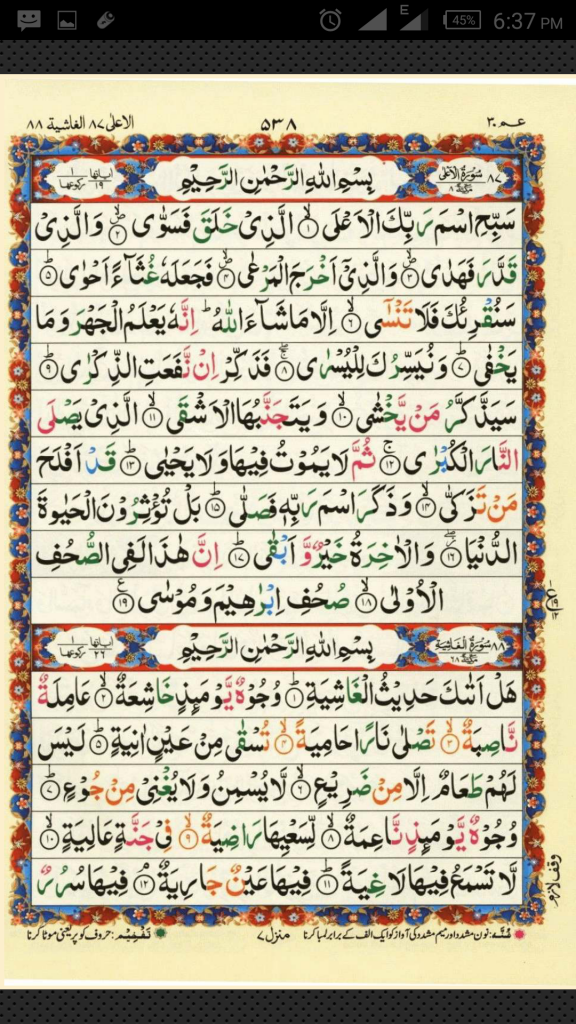 E
45%
6:37 PM
الاعلى ٨٧ الغاشية ٨٨
٥٣٨
عم ٣٠
اٰياتها ١٩
ركوعها ١
بِسْمِ اللهِ الرَّحْمٰنِ الرَّحِيْمِ
٨٧ سُوْرَةُ الْاَعْلٰى مَكِّيَّةٌ ٨
سَبِّحِ اسْمَ رَبِّكَ الْاَعْلَىۙ‏﴿۱﴾ الَّذِىْ خَلَقَ فَسَوّٰىۙ‏﴿۲﴾ وَالَّذِىْ
قَدَّرَ فَهَدٰىۙ‏﴿۳﴾ وَالَّذِىْۤ اَخْرَجَ الْمَرْعٰىۙ‏﴿۴﴾ فَجَعَلَهٗ غُثَآءً اَحْوٰىؕ‏﴿۵﴾
سَنُقْرِئُكَ فَلَا تَنْسٰٓىۙ‏﴿۶﴾ اِلَّا مَا شَآءَ اللهُ ؕ اِنَّهٗ يَعْلَمُ الْجَهْرَ وَمَا
يَخْفٰىؕ‏﴿۷﴾ وَنُيَسِّرُكَ لِلْيُسْرٰىۖۚ‏﴿۸﴾ فَذَكِّرْ اِنْ نَّفَعَتِ الذِّكْرٰىؕ‏﴿۹﴾
سَيَذَّكَّرُ مَنْ يَّخْشٰىۙ‏﴿۱۰﴾ وَيَتَجَنَّبُهَا الْاَشْقَىۙ‏﴿۱۱﴾ الَّذِىْ يَصْلَى
النَّارَ الْكُبْرٰىۚ‏﴿۱۲﴾ ثُمَّ لَا يَمُوْتُ فِيْهَا وَلَا يَحْيٰىؕ‏﴿۱۳﴾ قَدْ اَفْلَحَ
مَنْ تَزَكّٰىۙ‏﴿۱۴﴾ وَذَكَرَ اسْمَ رَبِّهٖ فَصَلّٰىؕ‏﴿۱۵﴾ بَلْ تُؤْثِرُوْنَ الْحَيٰوةَ
الدُّنْيَاۖ‏﴿۱۶﴾ وَالْاٰخِرَةُ خَيْرٌ وَّاَبْقٰىؕ‏﴿۱۷﴾ اِنَّ هٰذَا لَفِى الصُّحُفِ
الْاُوْلٰىۙ‏﴿۱۸﴾ صُحُفِ اِبْرٰهِيْمَ وَمُوْسٰى‏﴿۱۹﴾
اٰياتها ٢٦
ركوعها ١
بِسْمِ اللهِ الرَّحْمٰنِ الرَّحِيْمِ
٨٨ سُوْرَةُ الْغَاشِيَةِ مَكِّيَّةٌ ٦٨
هَلْ اَتٰىكَ حَدِيْثُ الْغَاشِيَةِؕ‏﴿۱﴾ وُجُوْهٌ يَّوْمَئِذٍ خَاشِعَةٌۙ‏﴿۲﴾ عَامِلَةٌ
نَّاصِبَةٌۙ‏﴿۳﴾ تَصْلٰى نَارًا حَامِيَةًۙ‏﴿۴﴾ تُسْقٰى مِنْ عَيْنٍ اٰنِيَةٍؕ‏﴿۵﴾ لَيْسَ
لَهُمْ طَعَامٌ اِلَّا مِنْ ضَرِيْعٍۙ‏﴿۶﴾ لَّا يُسْمِنُ وَلَا يُغْنِىْ مِنْ جُوْعٍؕ‏﴿۷﴾
وُجُوْهٌ يَّوْمَئِذٍ نَّاعِمَةٌۙ‏﴿۸﴾ لِّسَعْيِهَا رَاضِيَةٌۙ‏﴿۹﴾ فِىْ جَنَّةٍ عَالِيَةٍۙ‏﴿۱۰﴾
لَّا تَسْمَعُ فِيْهَا لَاغِيَةًؕ‏﴿۱۱﴾ فِيْهَا عَيْنٌ جَارِيَةٌۘ‏﴿۱۲﴾ فِيْهَا سُرُرٌ
وقف لازم
غُنَّه: نون مشدد اور میم مشدد کی آواز کو ایک الف کے برابر لمبا کرنا
منزل ٧
تَفْخِيْم: حروف کو پر یعنی موٹا کرنا